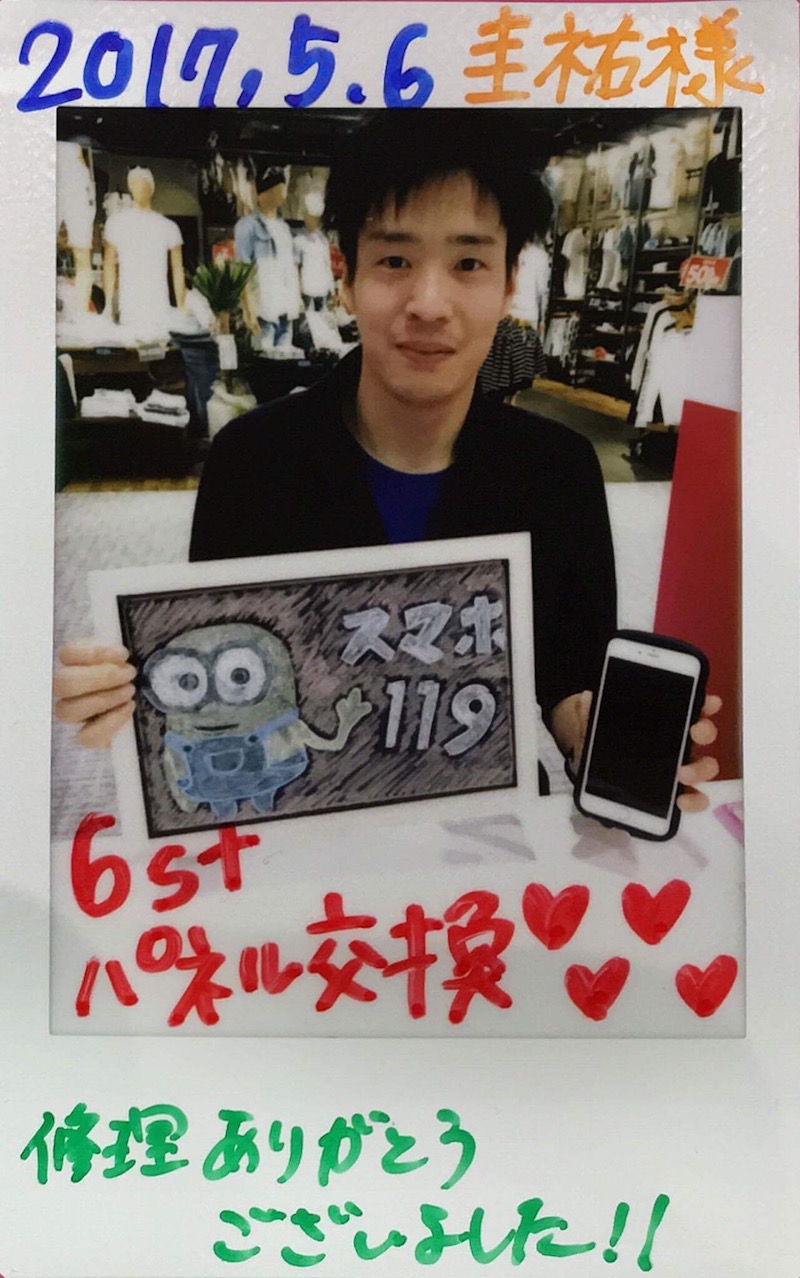 2017,5.6 圭祐様
50%
スマホ
119
6s+
パネル交換
修理ありがとう
ございました!!